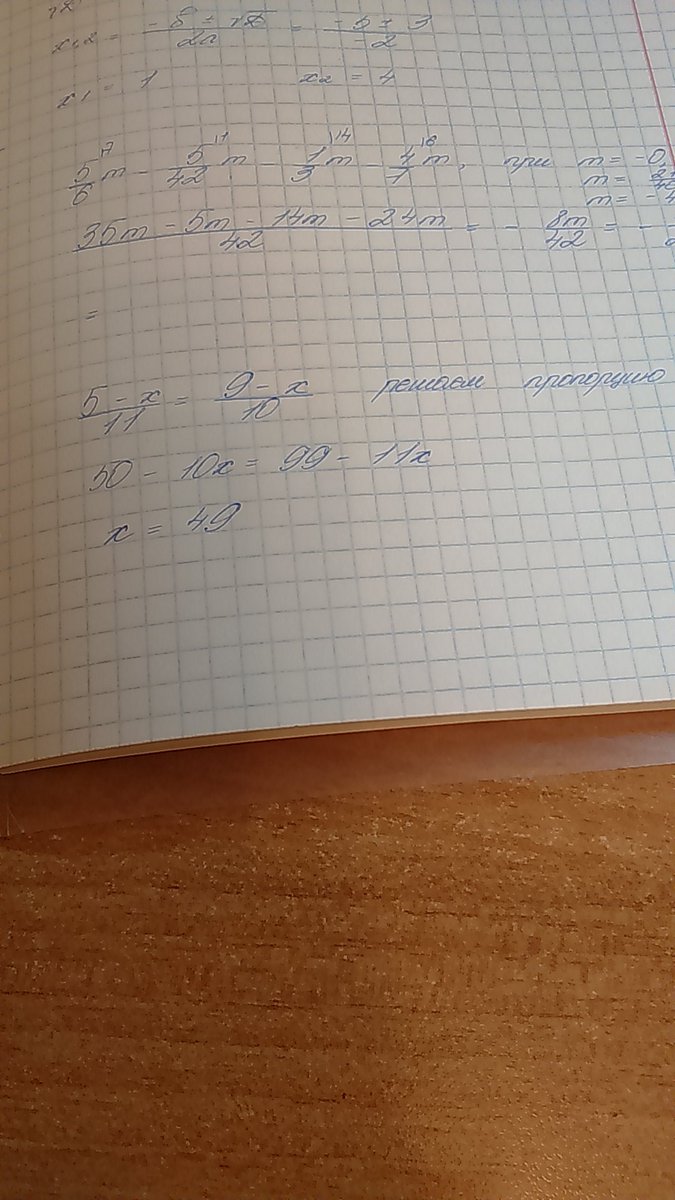 x₁,₂ = (-b ± √D)/2a = (-5 ± 3)/-2
x₁ = 1 x₂ = 4
5/6^17 m - 5/42^11 m - 1/3^114 m - 4/7^16 m, при m = -0,
m =
m = - 4
(35m - 5m - 14m - 24m)/42 = - 8m/42 = -
=
(5 - x)/11 = (9 - x)/10 решаем пропорцию
50 - 10x = 99 - 11x
x = 49